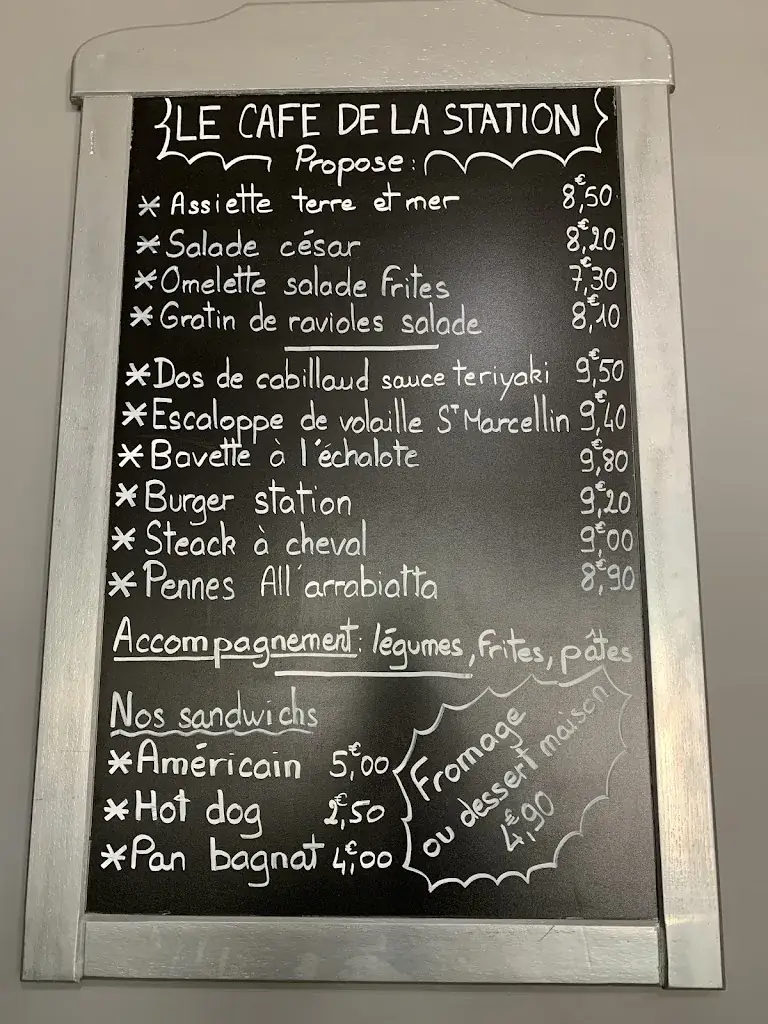 LE CAFE DE LA STATION
Propose:
* Assiette terre et mer 8,€50
* Salade césar 8,€20
* Omelette salade frites 7,€30
* Gratin de ravioles salade 8,€10
* Dos de cabillaud sauce teriyaki 9,€50
* Escaloppe de volaille St Marcellin 9,€40
* Bavette à l'échalote 9,€80
* Burger station 9,€20
* Steack à cheval 9,€00
* Pennes All'arrabiatta 8,€90
Accompagnement: légumes, frites, pâtes
Nos sandwichs
* Américain 5,€00
* Hot dog 2,€50
* Pan bagnat 4,€00
Fromage
ou dessert maison
4,€90